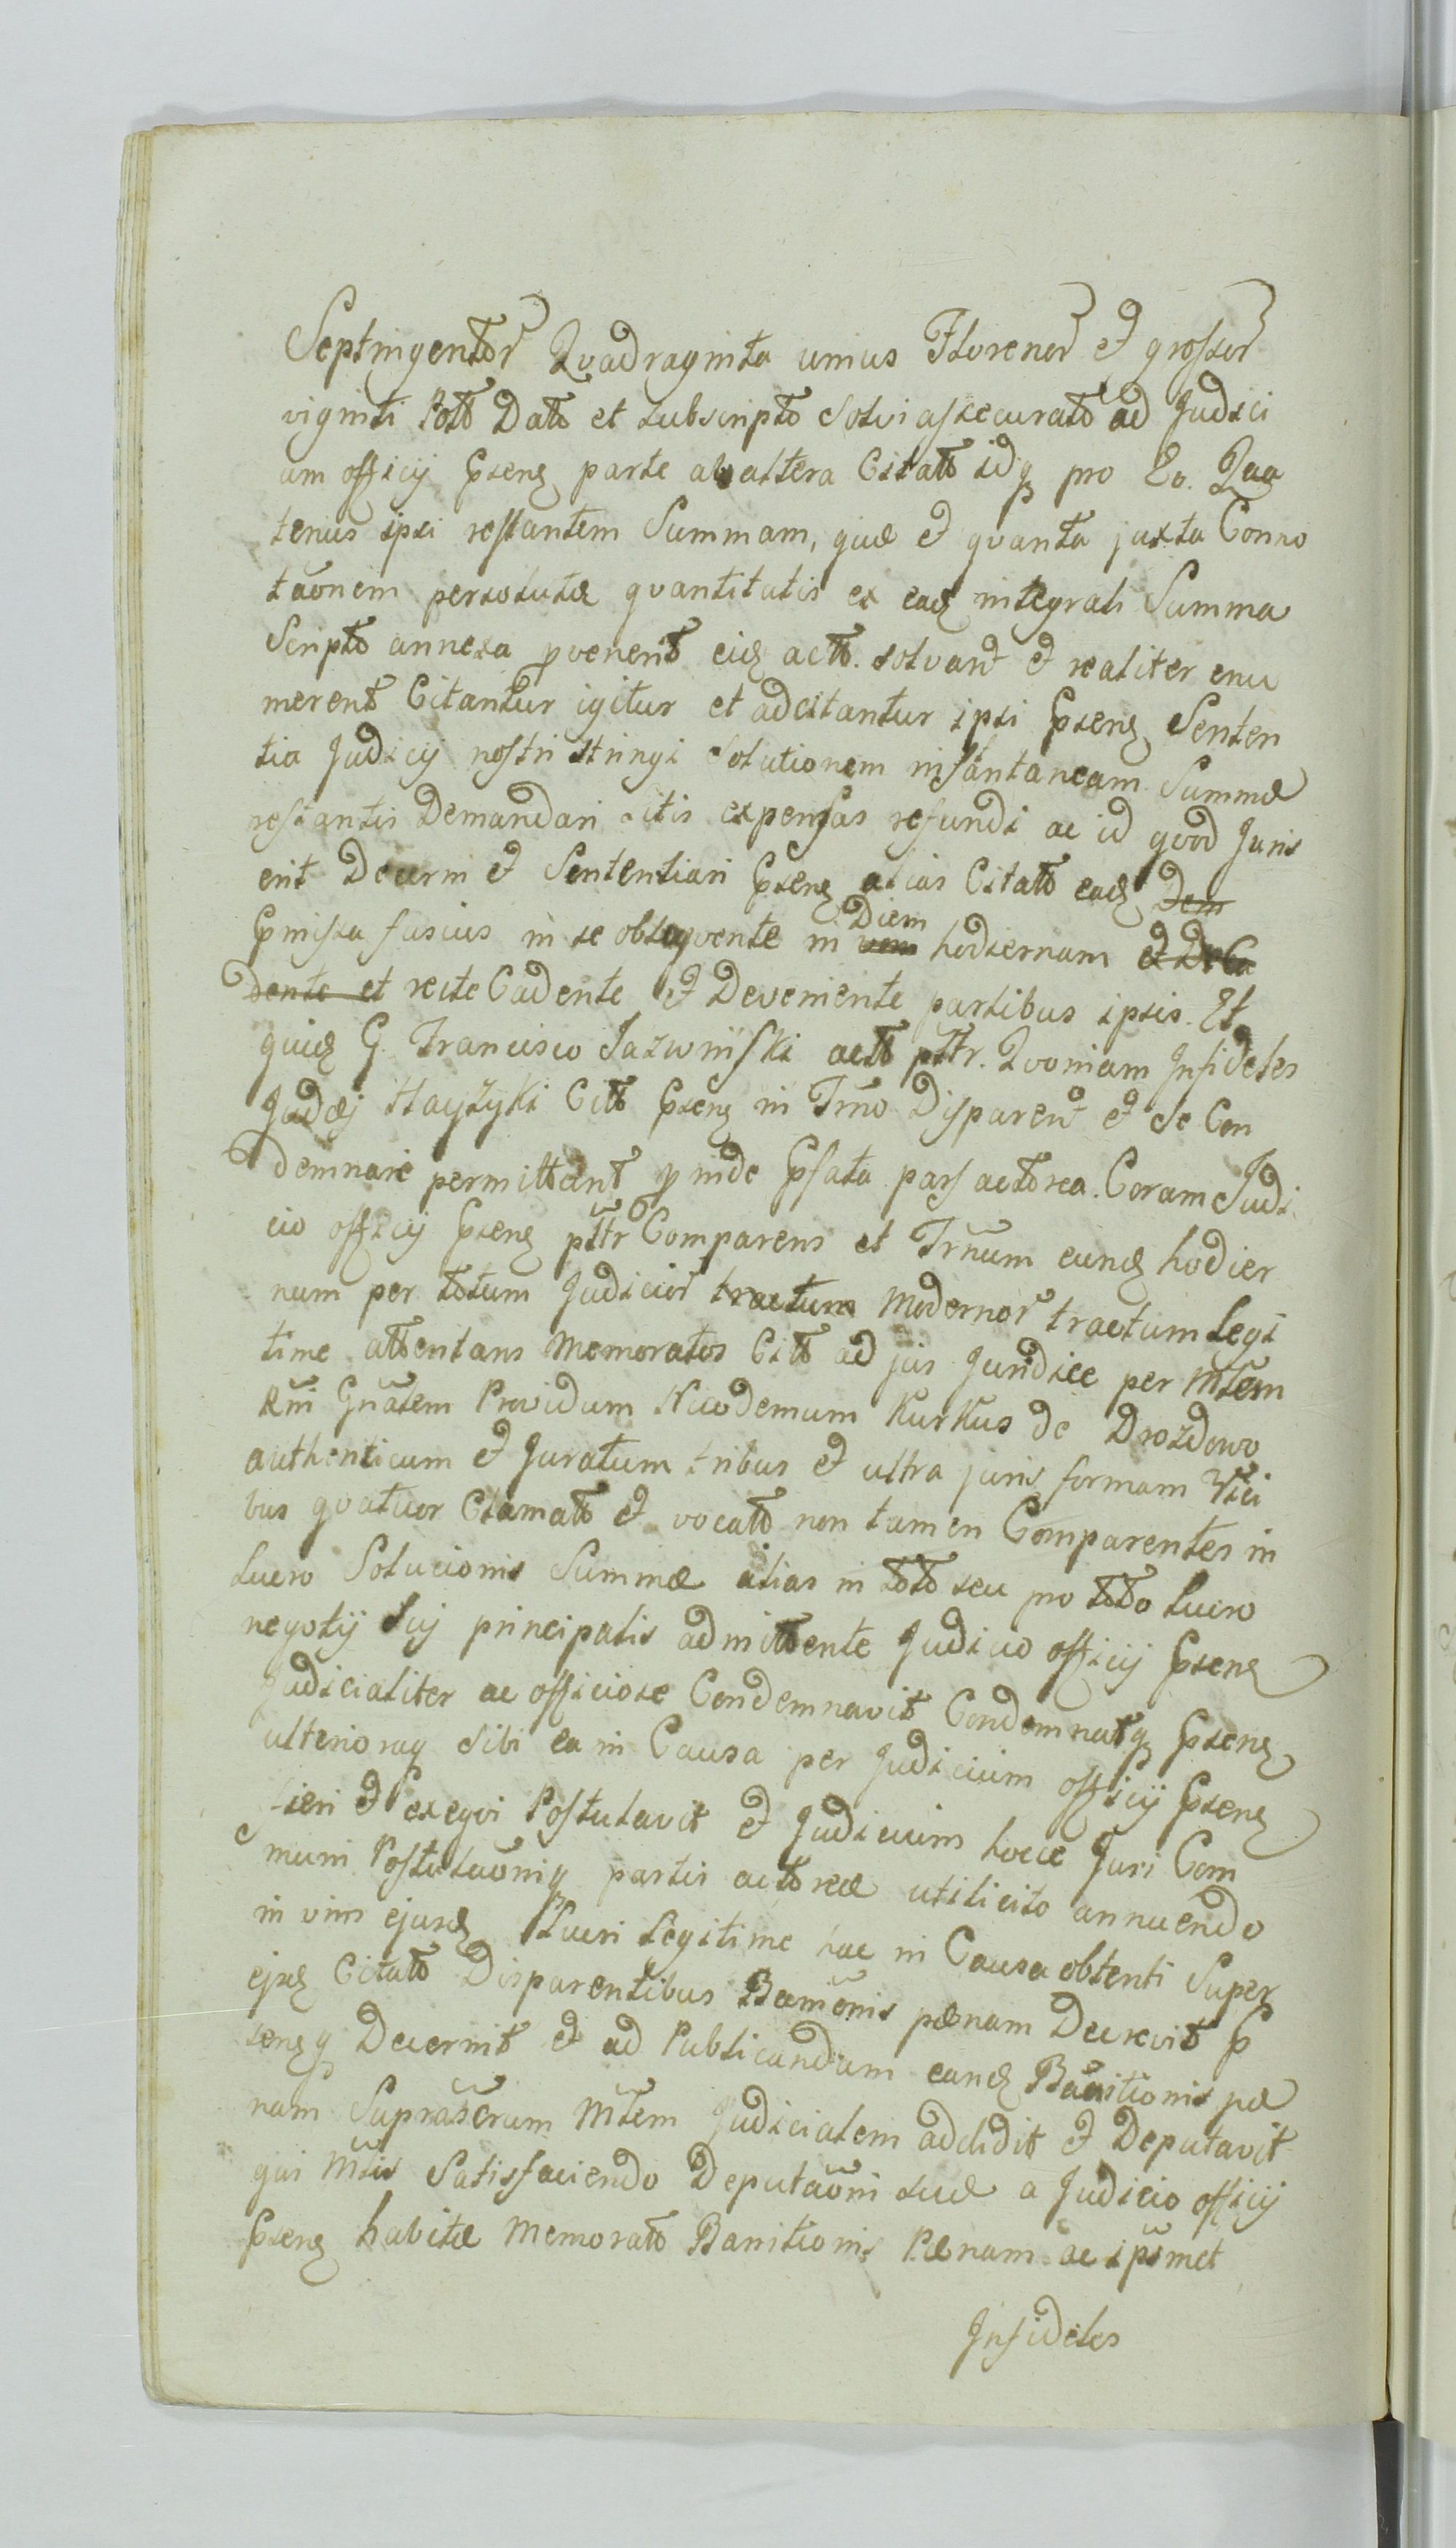 Septingentor Qvadraginta unius Florenor et grossor
viginti Pott Dato et subscripto solvi assecurato ad Judici
um officij Psens parte ab altera Citatt idq pro Eo. Qua
tenus ipsi restantem Summam, quæ et qvanta juxta Conno
taõnem persolutæ qvantitatis ex eads integrali Summa
Scripto annexa pvenerit eids actt. solvant et realiter enu
merent Citantur igitur et adcitantur ipsi Psens Senten
tia Judicij nostri stringi Solutionem instantaneam Summæ
restantis Demandari litis expensas refundi ac id qvod Juris
erit Decerni et Sententiari Psens alias Citatt eads Dem
Pmissa fusius in se obseqvente in vem Diem hodiernam et DeCa
dente et recte Cadente et Deveniente partibus ipsis. Et
quids G. Francisco Jazwiński actt pttr. Qvoniam Infideles
Judæj Hayzyki Citt Psens in Trno Disparent et se Con
demnare permittant pinde Psata pars actorea. Coram Judi
cio officij Psens pttr Comparens et Trnum eunds hodier
num per totum Judicior tractum Modernor tractum Legi
time attentans Memoratos Citt ad jus Juridice per Mtem
Rni Gnatem Providum Nicodemum Kurkus de Drozdowo
authenticum et Juratum tribus et ultra juris formam Vici
bus qvatuor Clamatt et vocatt non tamen Comparentes in
Lucro Solucionis Summæ alias in toto seu pro toto Lucro
negotij sui principalis admittente Judicio officij Psens
Judicialiter ac officiose Condemnavit Condemnatq Psens
ulterioraq sibi ea in Causa per Judicium officij Psens
fieri et exeqvi Postulavit et Judicium hocce Juri Com
muni Postulaõniq partis actoreæ utilicito annuendo
in vim ejusds Lucri Legitime hac in Causa obtenti Super
ejsds Citatt Disparentibus Bannionis pænam Decrevit P
sensq Decernit et ad Publicandam eands Banitionis pæ
nam Suprascrum Mtem Judicialem addidit et Deputavit
qui Mtis Satisfaciendo Deputaõni suæ a Judicio officij
Psens habitæ Memorato Banitionis Pænam ac ipsmet
Infideles